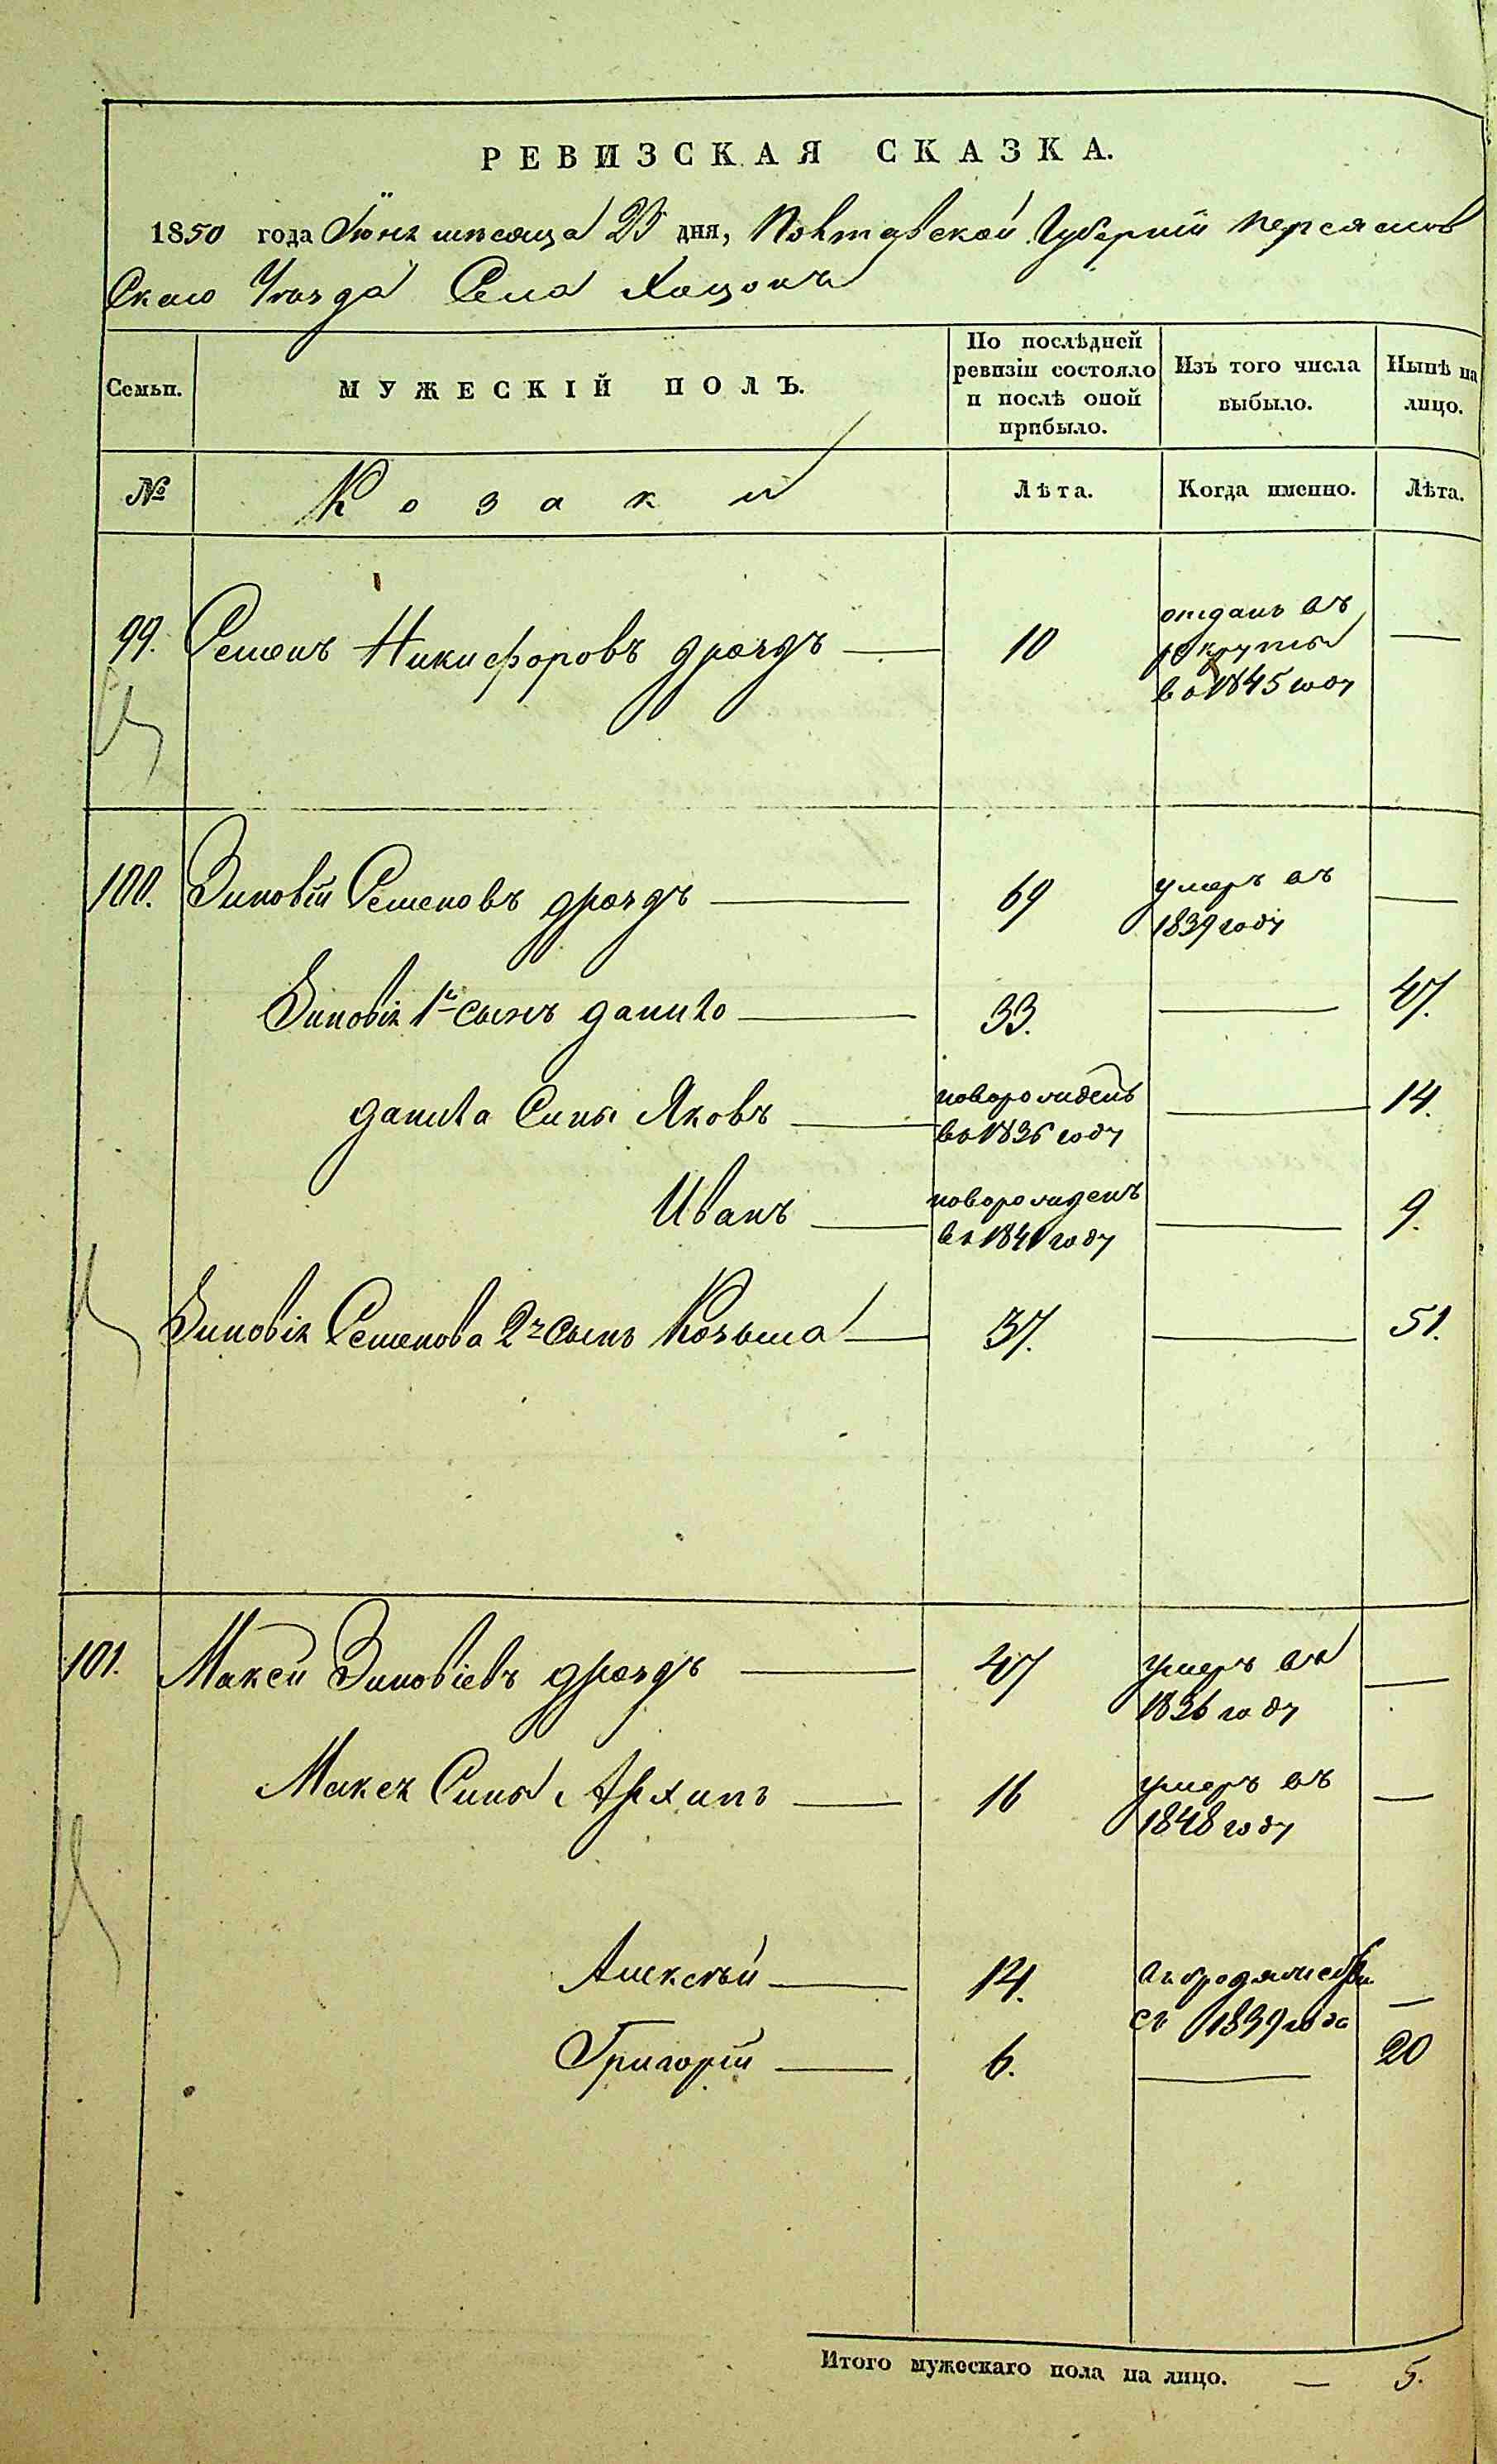 РЕВИЗСКАЯ СКАЗКА.
1850 года Іюня месяца 25 дня, Полтавской Губерніи Переяслов
Скаго Уезда Села Хоцокъ
Семьи.
МУЖЕСКІЙ ПОЛЪ.
По послѣдней ревизіи состояло и послѣ оной прибыло.
Изъ того числа выбыло.
Нынѣ на лицо.
№
Козаки
Лѣта.
Когда именно.
Лѣта.
99. Семенъ Никифоровъ дроздъ — 10 отданъ въ рекруты —
во 1845 году
100. Зиновій Семеновъ дроздъ — 69 умеръ въ —
1839 году
Зиновія 1й сынъ данило — 33. — 47.
данила Сыны Яковъ — новорожденъ — 14.
во 1836 году
Иванъ — новорожденъ — 9.
во 1841 году
Зиновія Семенова 2й Сынъ Козьма — 37. — 51.
101. Максим Зиновіевъ дроздъ — 47 умеръ въ —
1836 году
Макси Сыны Архипъ — 16 умеръ въ —
1848 году
Алексѣй — 14. въ бродяжестве —
съ 1839 года
Григорій — 6. — 20
Итого мужескаго пола на лицо. — 5.